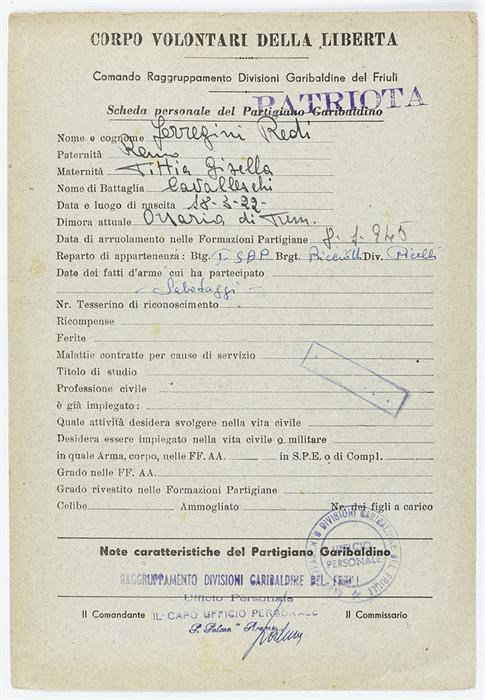 CORPO VOLONTARI DELLA LIBERTA
Comando Raggruppamento Divisioni Garibaldine del Friuli
PATRIOTA
Scheda personale del Partigiano Garibaldino
Nome e cognome Ferregini Redi
Paternità Remo
Maternità Tittia Gisella
Nome di Battaglia Cavalleschi
Data e luogo di nascita 18-3-22-
Dimora attuale Orsaria di Prem.
Data di arruolamento nelle Formazioni Partigiane 8-1-945
Reparto di appartenenza: Btg. I-SAP Brgt. Picciotti Div. Picelli
Date dei fatti d'arme cui ha partecipato
- Sabotaggi -
Nr. Tesserino di riconoscimento
Ricompense
Ferite
Malattie contratte per cause di servizio
Titolo di studio
Professione civile
è già impiegato:
Quale attività desidera svolgere nella vita civile
Desidera essere impiegato nella vita civile o militare
in quale Arma, corpo, nelle FF. AA. in S.P.E. o di Compl.
Grado nelle FF. AA.
Grado rivestito nelle Formazioni Partigiane
Celibe Ammogliato Nr. dei figli a carico
RAGGRUPPAMENTO DIVISIONI GARIBALDINE DEL FRIULI
UFFICIO PERSONALE
Note caratteristiche del Partigiano Garibaldino
RAGGRUPPAMENTO DIVISIONI GARIBALDINE DEL FRIULI
Ufficio Personale
Il Comandante IL CAPO UFFICIO PERSONALE Il Commissario